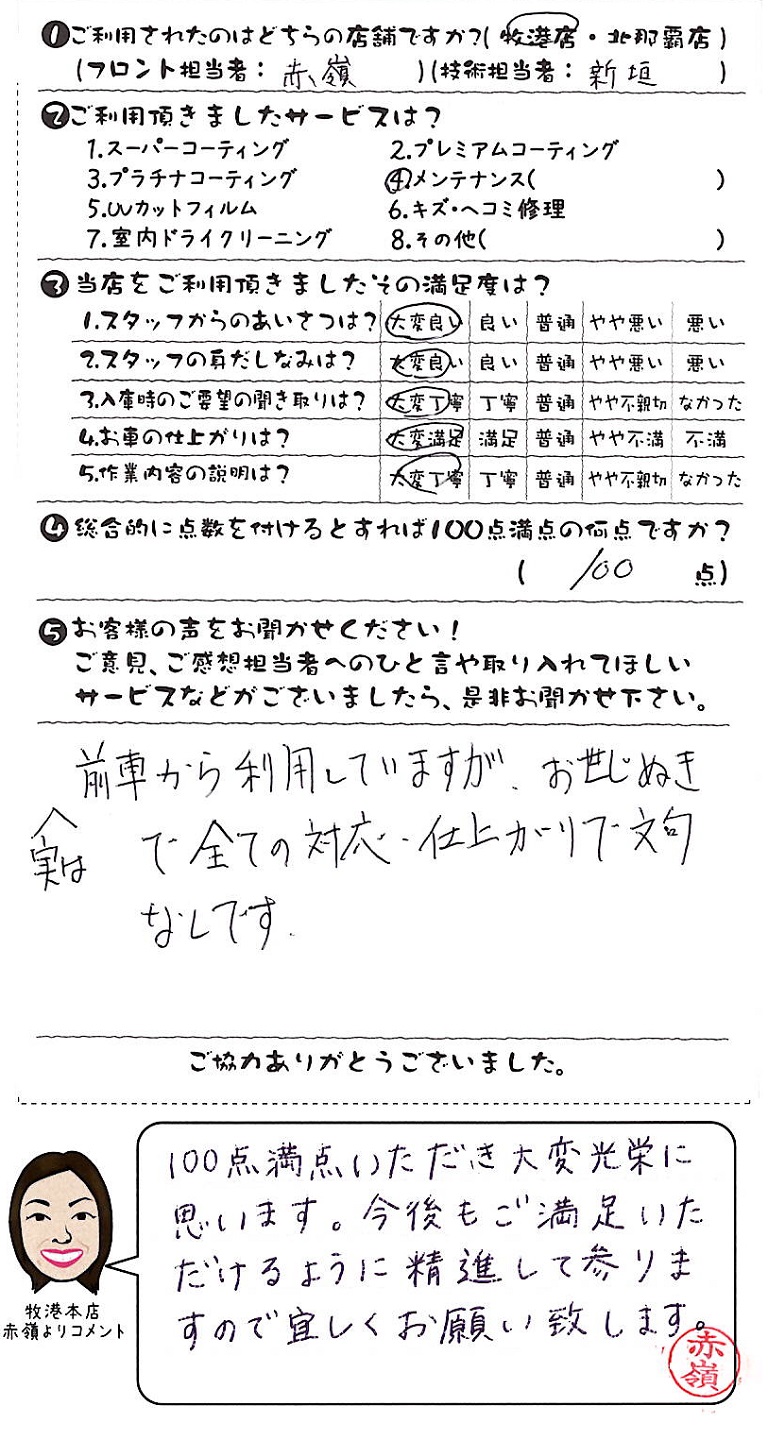 ❶ご利用されたのはどちらの店舗ですか?(牧港店・北那覇店)
(フロント担当者:赤嶺)(技術担当者:新垣)
❷ご利用頂きましたサービスは?
1.スーパーコーティング 2.プレミアムコーティング
3.プラチナコーティング 4.メンテナンス( )
5.UVカットフィルム 6.キズ・ヘコミ修理
7.室内ドライクリーニング 8.その他( )
❸当店をご利用頂きましたその満足度は?
1.スタッフからのあいさつは? 大変良い 良い 普通 やや悪い 悪い
2.スタッフの身だしなみは? 大変良い 良い 普通 やや悪い 悪い
3.入庫時のご要望の聞き取りは? 大変丁寧 丁寧 普通 やや不親切 なかった
4.お車の仕上がりは? 大変満足 満足 普通 やや不満 不満
5.作業内容の説明は? 大変丁寧 丁寧 普通 やや不親切 なかった
❹総合的に点数を付けるとすれば100点満点の何点ですか?
(100点)
❺お客様の声をお聞かせください!
ご意見、ご感想担当者へのひと言や取り入れてほしい
サービスなどがございましたら、是非お聞かせ下さい。
前車から利用していますが、お世じぬき
で全ての対応・仕上がりで文句
実は
なしです.
ご協力ありがとうございました。
100点満点いただき大変光栄に
思います。今後もご満足いた
だけるように精進して参りま
すので宜しくお願い致します。
牧港本店
赤嶺よりコメント
赤嶺